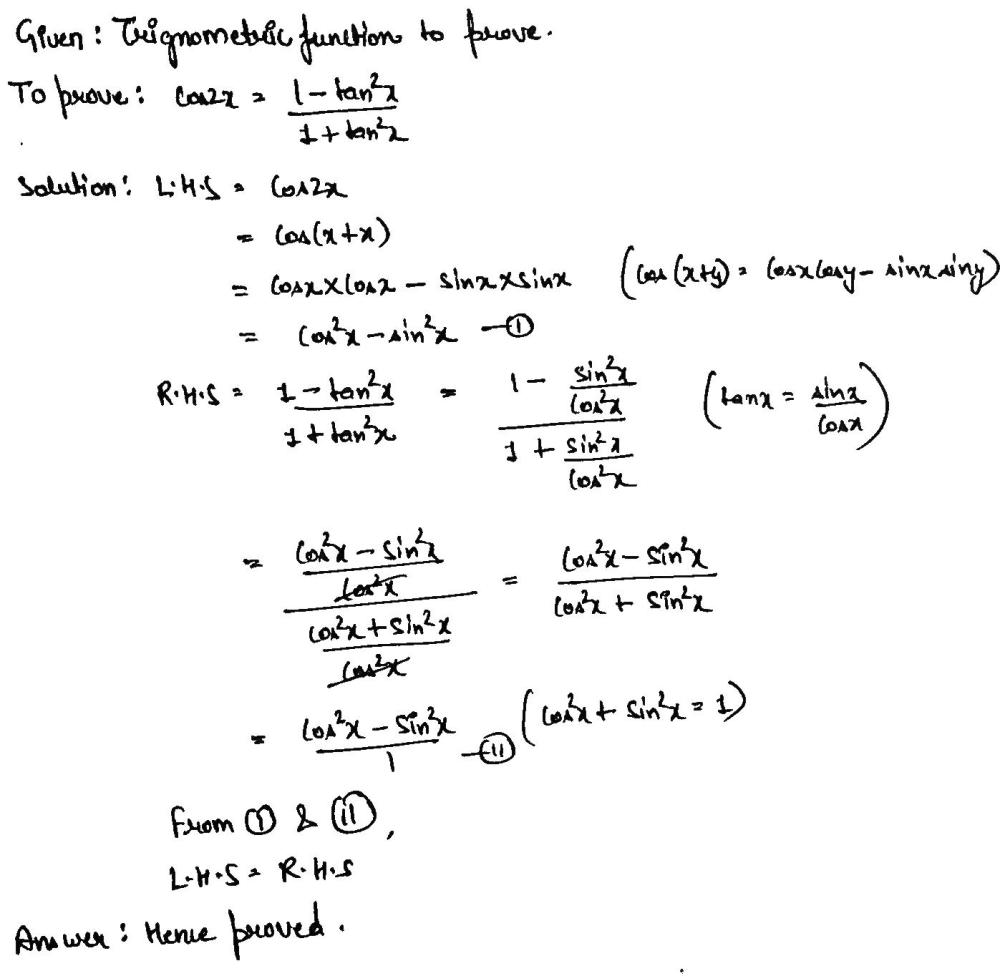 Given : Trignometric function to prove.
To prove : cos2x = (1 - tan²x)/(1 + tan²x)
Solution : L.H.S = Cos2x
= Cos(x+x)
= Cosx×Cosx - Sinx×Sinx (Cos(x+y) = Cosx Cosy - sinx siny)
= Cos²x - sin²x —(I)
R.H.S = (1 - tan²x)/(1 + tan²x) = (1 - Sin²x/Cos²x)/(1 + Sin²x/Cos²x) (tanx = sinx/Cosx)
= ((Cos²x - Sin²x)/Cos²x)/((Cos²x + Sin²x)/Cos²x) = (Cos²x - Sin²x)/(Cos²x + Sin²x)
= (Cos²x - Sin²x)/1 —(II) (Cos²x + Sin²x = 1)
From (I) & (II),
L.H.S = R.H.S
Answer : Hence proved.